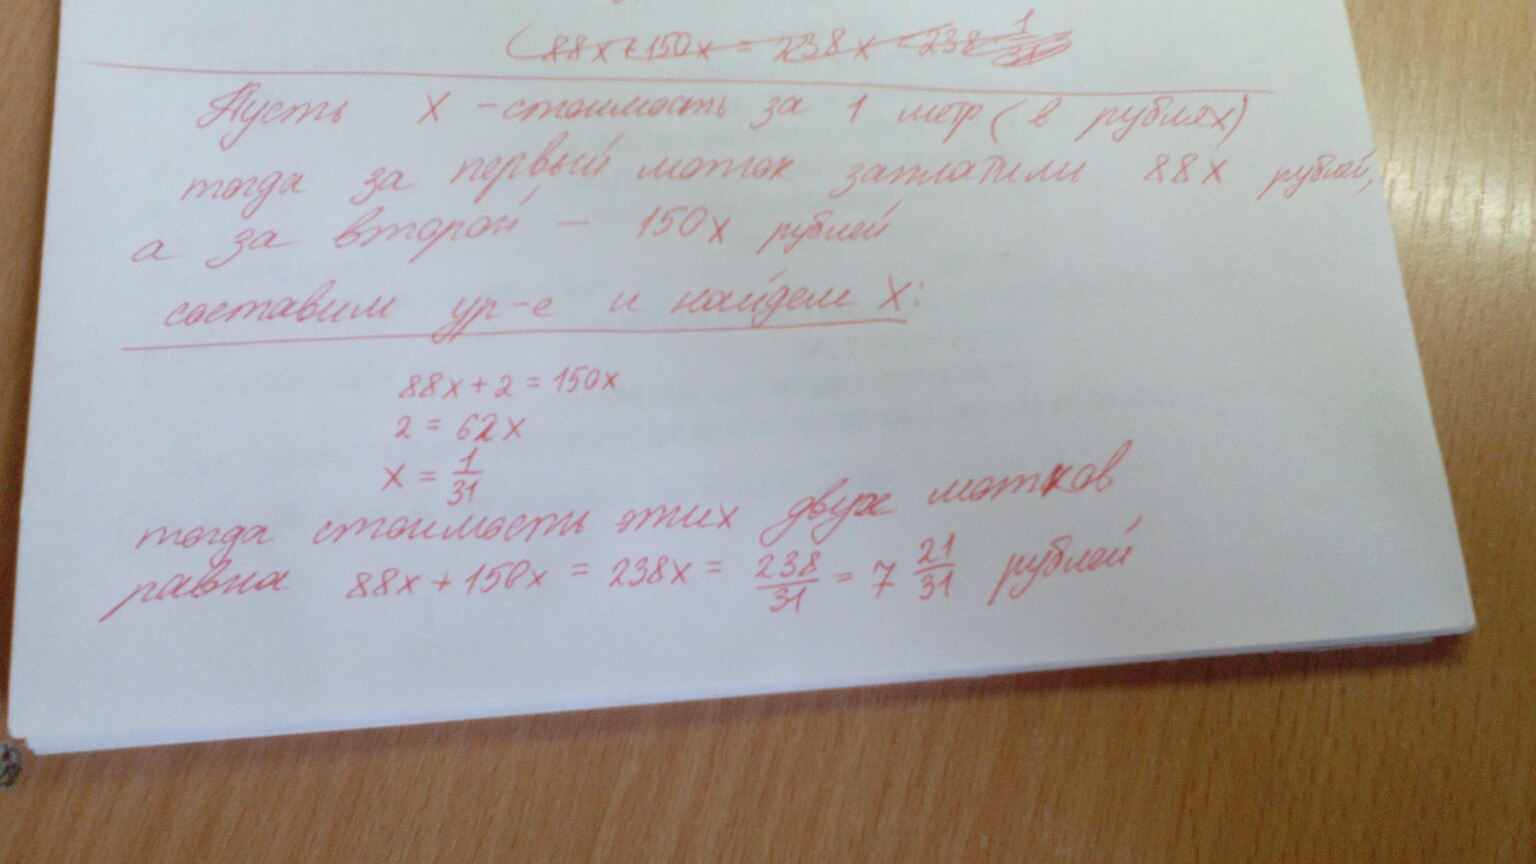 88x+150x = 238x = 238 · 1/31
Пусть X - стоимость за 1 метр (в рублях)
тогда за первый моток заплатили 88X рублей,
а за второй — 150x рублей
составим ур-е и найдем X:
88x + 2 = 150x
2 = 62x
x = 1/31
тогда стоимость этих двух мотков
равна 88x + 150x = 238x = 238/31 = 7 21/31 рублей